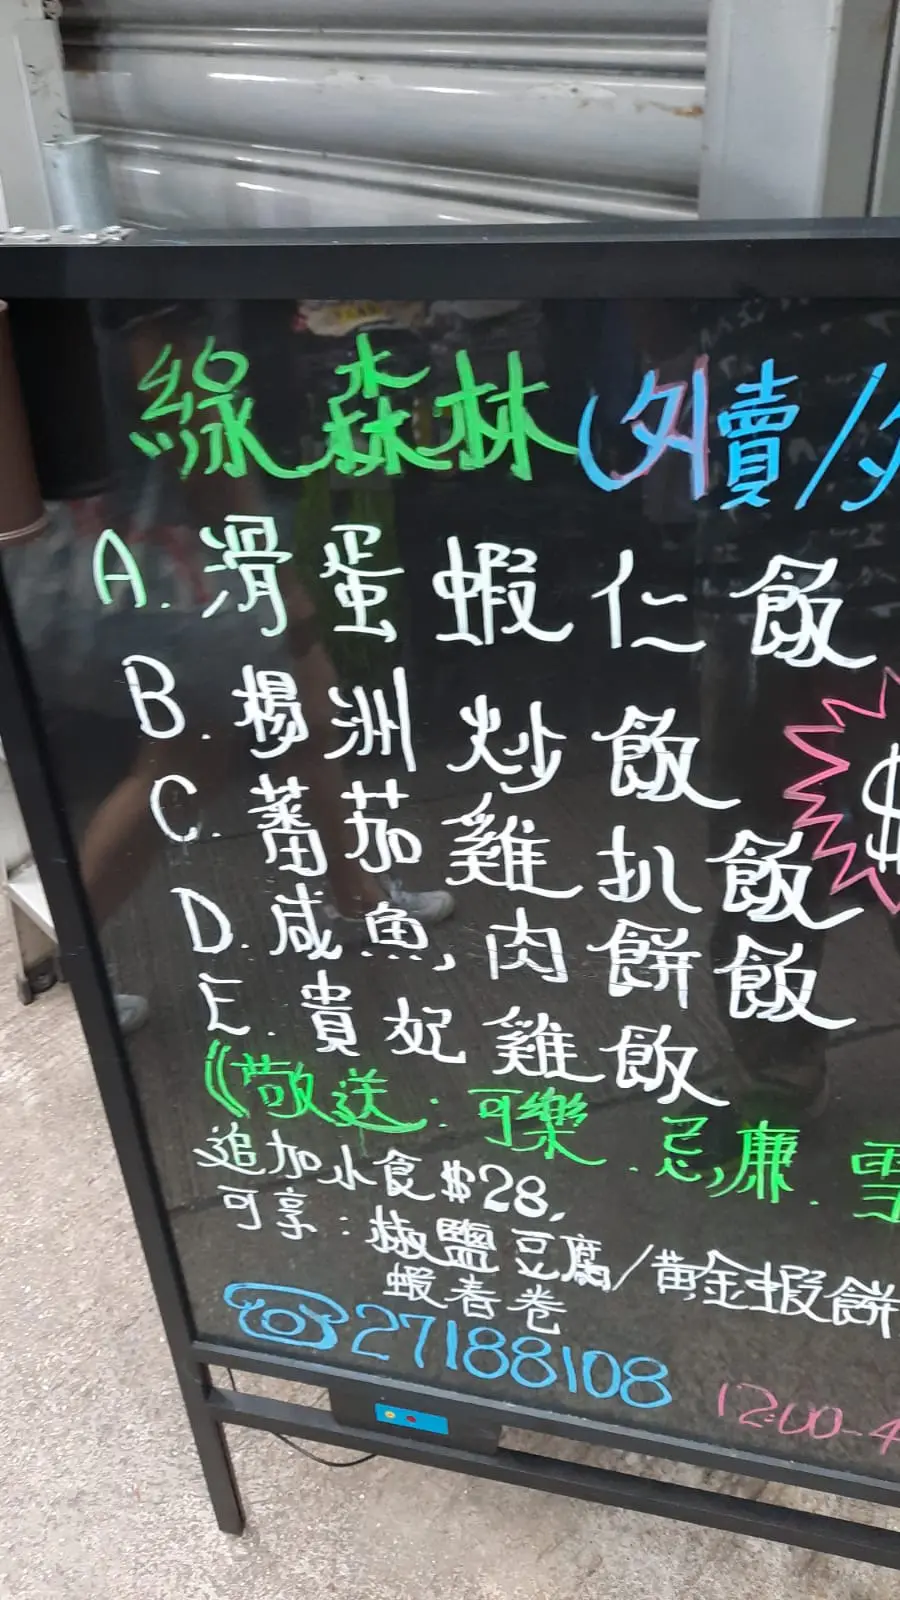 綠森林(外賣/
A. 滑蛋蝦仁飯
B. 楊洲炒飯
$
C. 蕃茄雞扒飯
D. 咸魚肉餅飯
E. 貴妃雞飯
(敬送:可樂.忌廉.雪
追加小食$28,
可享:椒鹽豆腐/黃金蝦餅
蝦春卷
☎27188108
12:00-4